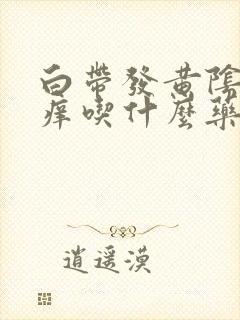 白帶發黃陰
痒喫什麼藥
逍遥漠